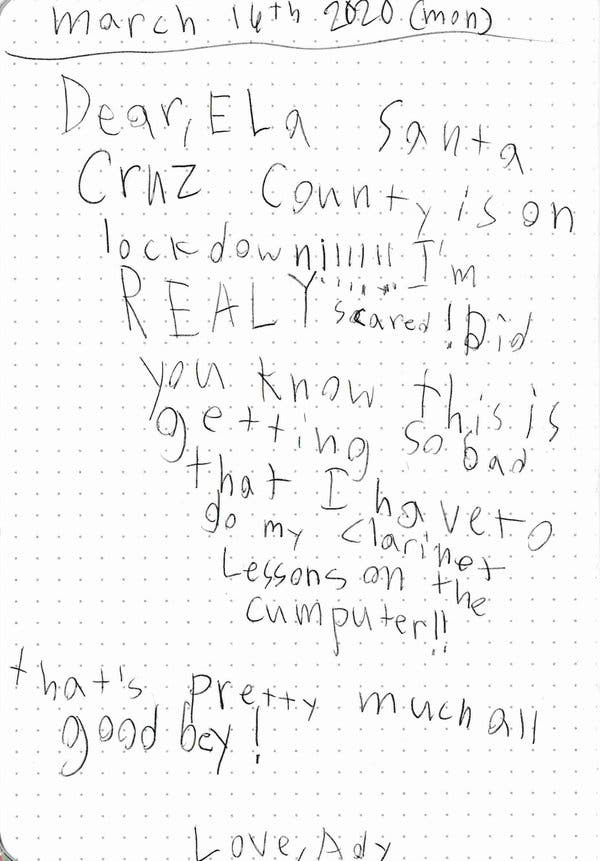 march 16th 2020 (mon)
Dear, ELa Santa
Cruz County is on
lockdown!!!!!!! I'm
REALY scared! Did
you know this is
getting so bad
that I have to
do my clarinet
Lessons on the
cumputer!!
that's pretty much all
good bey!
Love, Ady